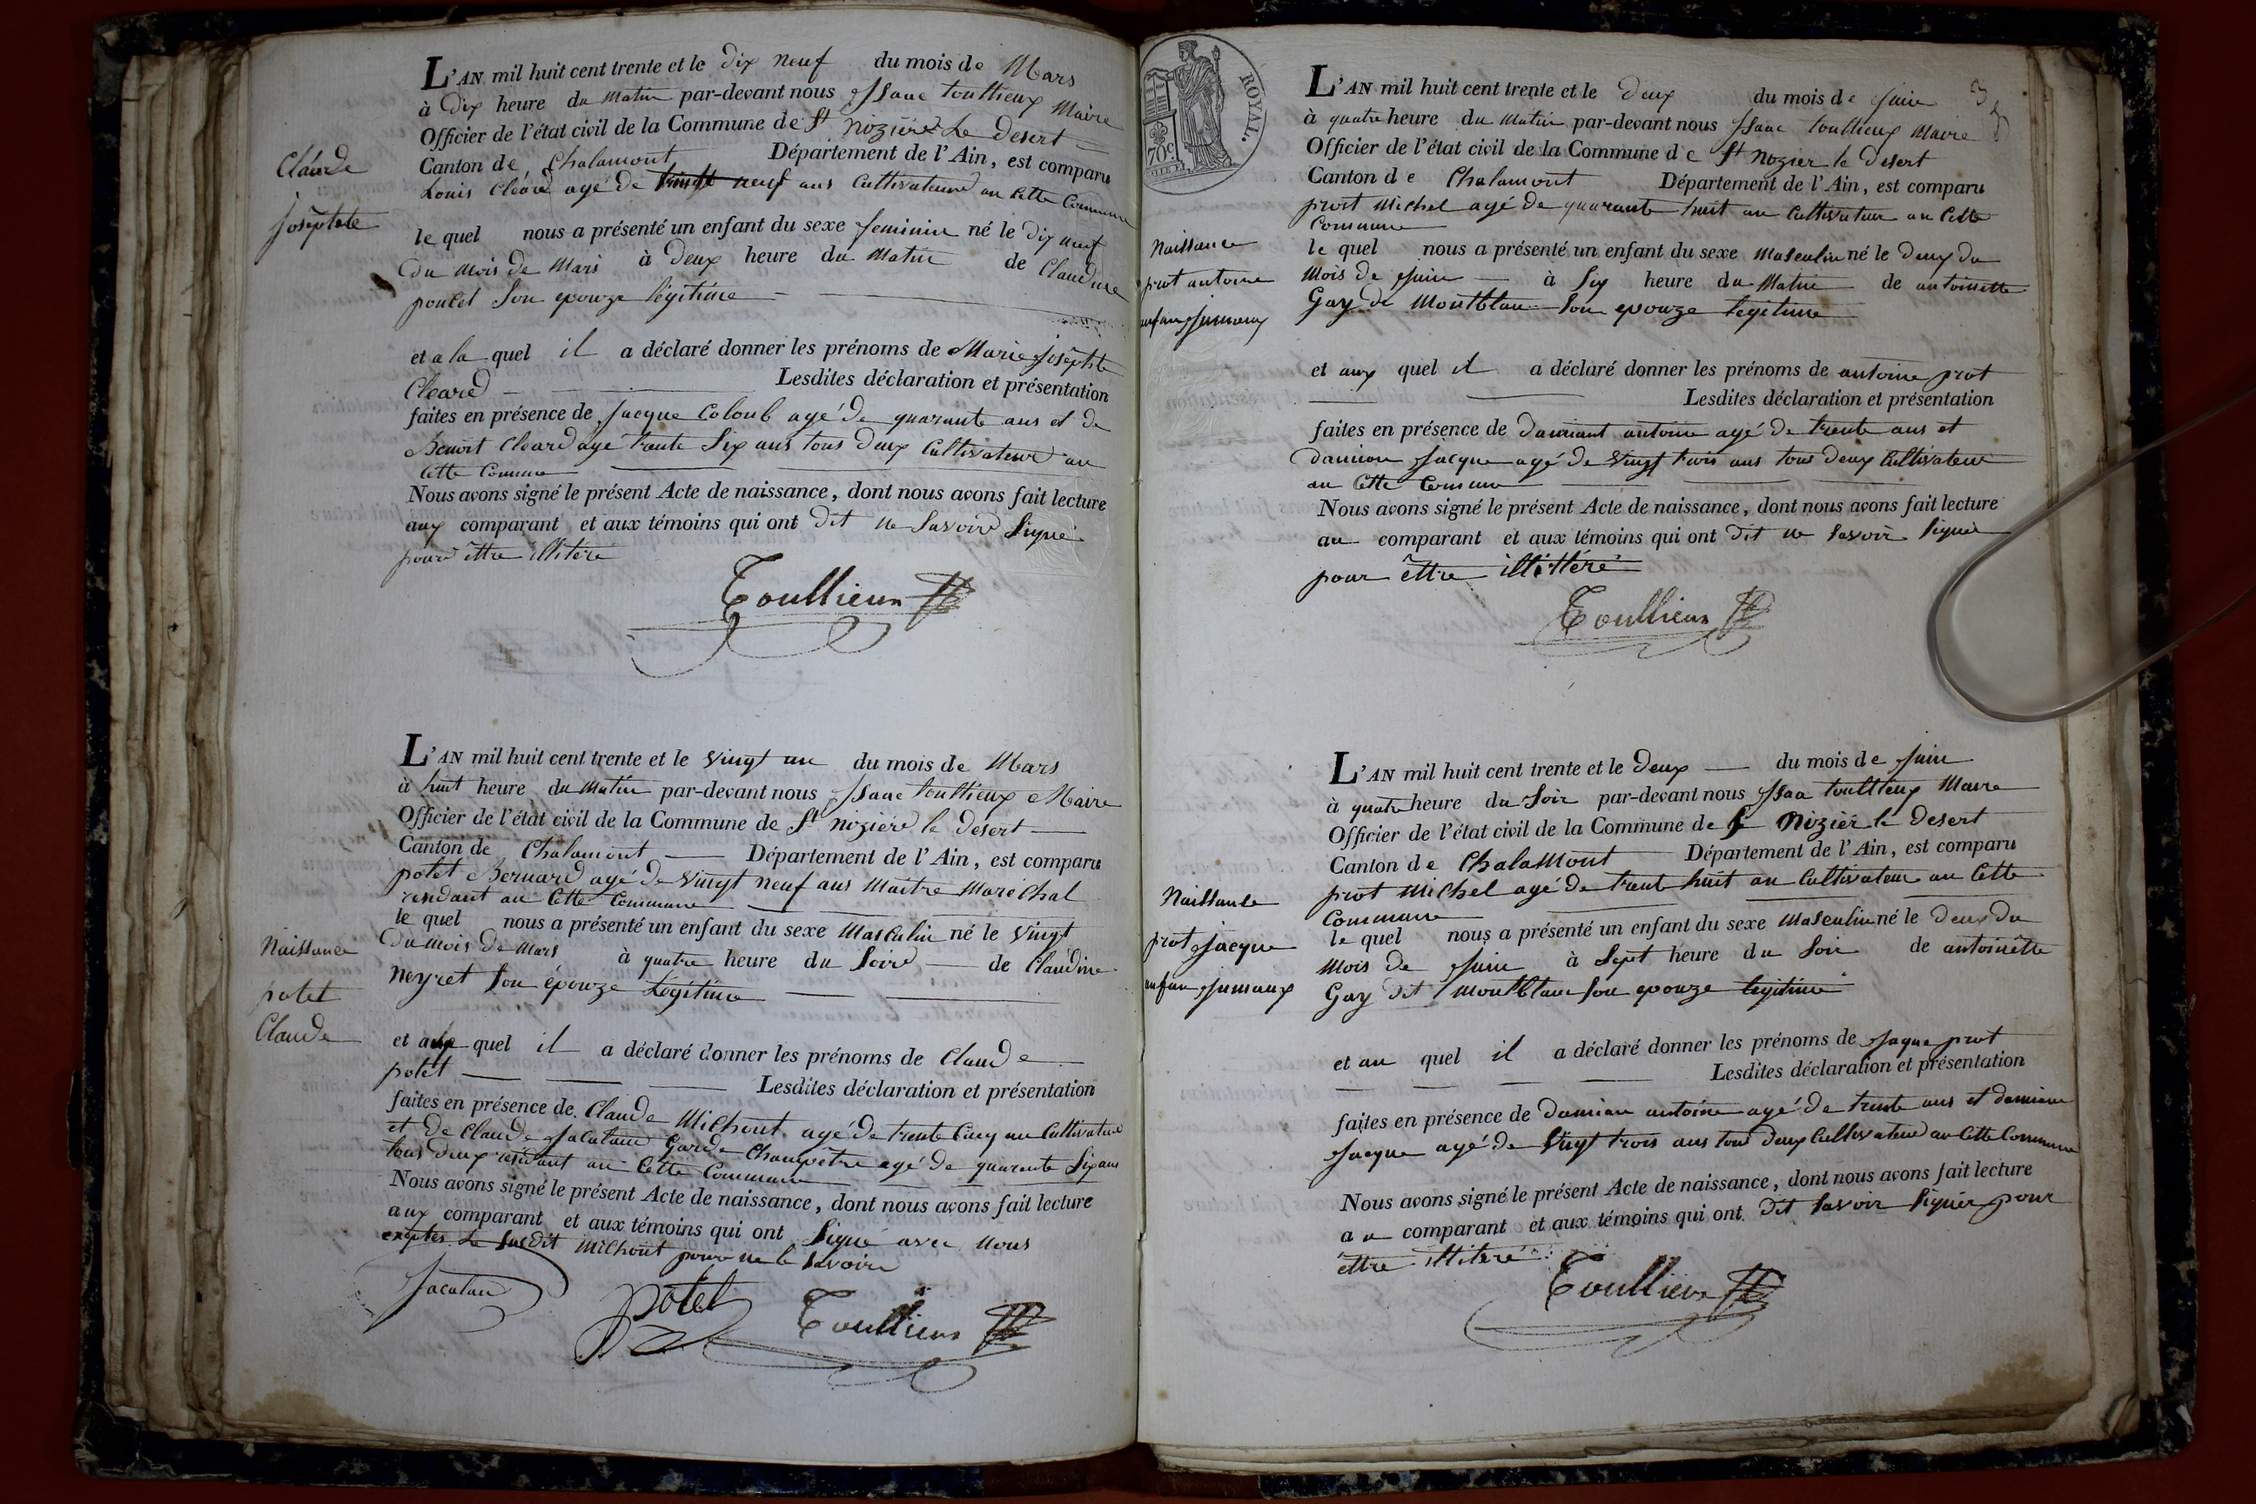 L'AN mil huit cent trente et le dix neuf du mois de Mars
à dix heure du Matin par-devant nous Isaac toullieux Maire
Officier de l'état civil de la Commune de St Nozière Le desert
Canton de Chalamont Département de l'Ain, est comparu
Louis Cléard agé de neuf ans Cultivateur au Cette Commune
Joséphte
le quel nous a présenté un enfant du sexe feminin né le dix neuf
du mois de Mars à deux heure du Matin de Claudine
poulet Son epouze légitime
et a la quel il a déclaré donner les prénoms de Marie Joséphte
Cleard Lesdites déclaration et présentation
faites en présence de Jacque Coloub agé de quarante ans et de
Benoit Cleard agé trante Six ans tous deux Cultivateur au
Cette Comune
Nous avons signé le présent Acte de naissance, dont nous avons fait lecture
aux comparant et aux témoins qui ont dit ne Savoire Signé
pour ittre illitéré
Toullieux
L'AN mil huit cent trente et le vingt un du mois de Mars
à huit heure du Matin par-devant nous Isaac toullieux Maire
Officier de l'état civil de la Commune de St Nozière le desert
Canton de Chalamont Département de l'Ain, est comparu
potet Bernard agé de vingt neuf ans Maitre Maréchal
residant au Cette Commune
Naissance
potet
Claude
le quel nous a présenté un enfant du sexe Masculin né le vingt
du mois de Mars à quatre heure du Soire de Claudine
Neyret Son épouze Légitime
et aux quel il a déclaré donner les prénoms de Claude
potet Lesdites déclaration et présentation
faites en présence de Claude Michout agé de trante Cinq ans Cultivateur
et de Claude Jacalau Garde Champêtre agé de quarente Six ans
tous deux résidant au Cette Commune
Nous avons signé le présent Acte de naissance, dont nous avons fait lecture
aux comparant et aux témoins qui ont Signé avec Nous
exeptés Le Susdit Michout pour ne le Savoire
Jacalau
potet
Toullieux
ROYAL.
70c
L'AN mil huit cent trente et le deux du mois de Juin
à quatre heure du Matin par-devant nous Isaac toullieux Maire
Officier de l'état civil de la Commune de St Nozier le desert
Canton de Chalamont Département de l'Ain, est comparu
prost Michel agé de quarante huit an Cultivateur au Cette
Commune
Naissance
prot antoine
enfan Jumeaux
le quel nous a présenté un enfant du sexe Masculin né le deux du
Mois de Juin à Six heure du Matin de antoinette
Gay de Montblan Son epouze legitime
et aux quel il a déclaré donner les prénoms de antoine prot
Lesdites déclaration et présentation
faites en présence de antoine agé de trente ans et
damian Jacque agé de vingt trois ans tous deux Cultivateur
au Cette Comune
Nous avons signé le présent Acte de naissance, dont nous avons fait lecture
au comparant et aux témoins qui ont dit ne Savoir Signé
pour êttre illittéré
Toullieux
L'AN mil huit cent trente et le deux du mois de Juin
à quatre heure du Soir par-devant nous Isaa toullieux Maire
Officier de l'état civil de la Commune de St Nozier le desert
Canton de Chalamont Département de l'Ain, est comparu
prot Michel agé de trent huit an Cultivateur au Cette
Commune
Naissance
prot Jacque
enfan Jumeaux
le quel nous a présenté un enfant du sexe Masculin né le deux du
Mois de Juin à Sept heure du Soir de antoinêtte
Gay dit Montblan Son epouze legitime
et au quel il a déclaré donner les prénoms de Jaque prot
Lesdites déclaration et présentation
faites en présence de Damian antoine agé de trente ans et damian
Jacque agé de vingt trois ans tous deux Cultivateur au Cette Commune
Nous avons signé le présent Acte de naissance, dont nous avons fait lecture
au comparant et aux témoins qui ont dit Savoir Signér pour
êttre illiteré
Toullieux